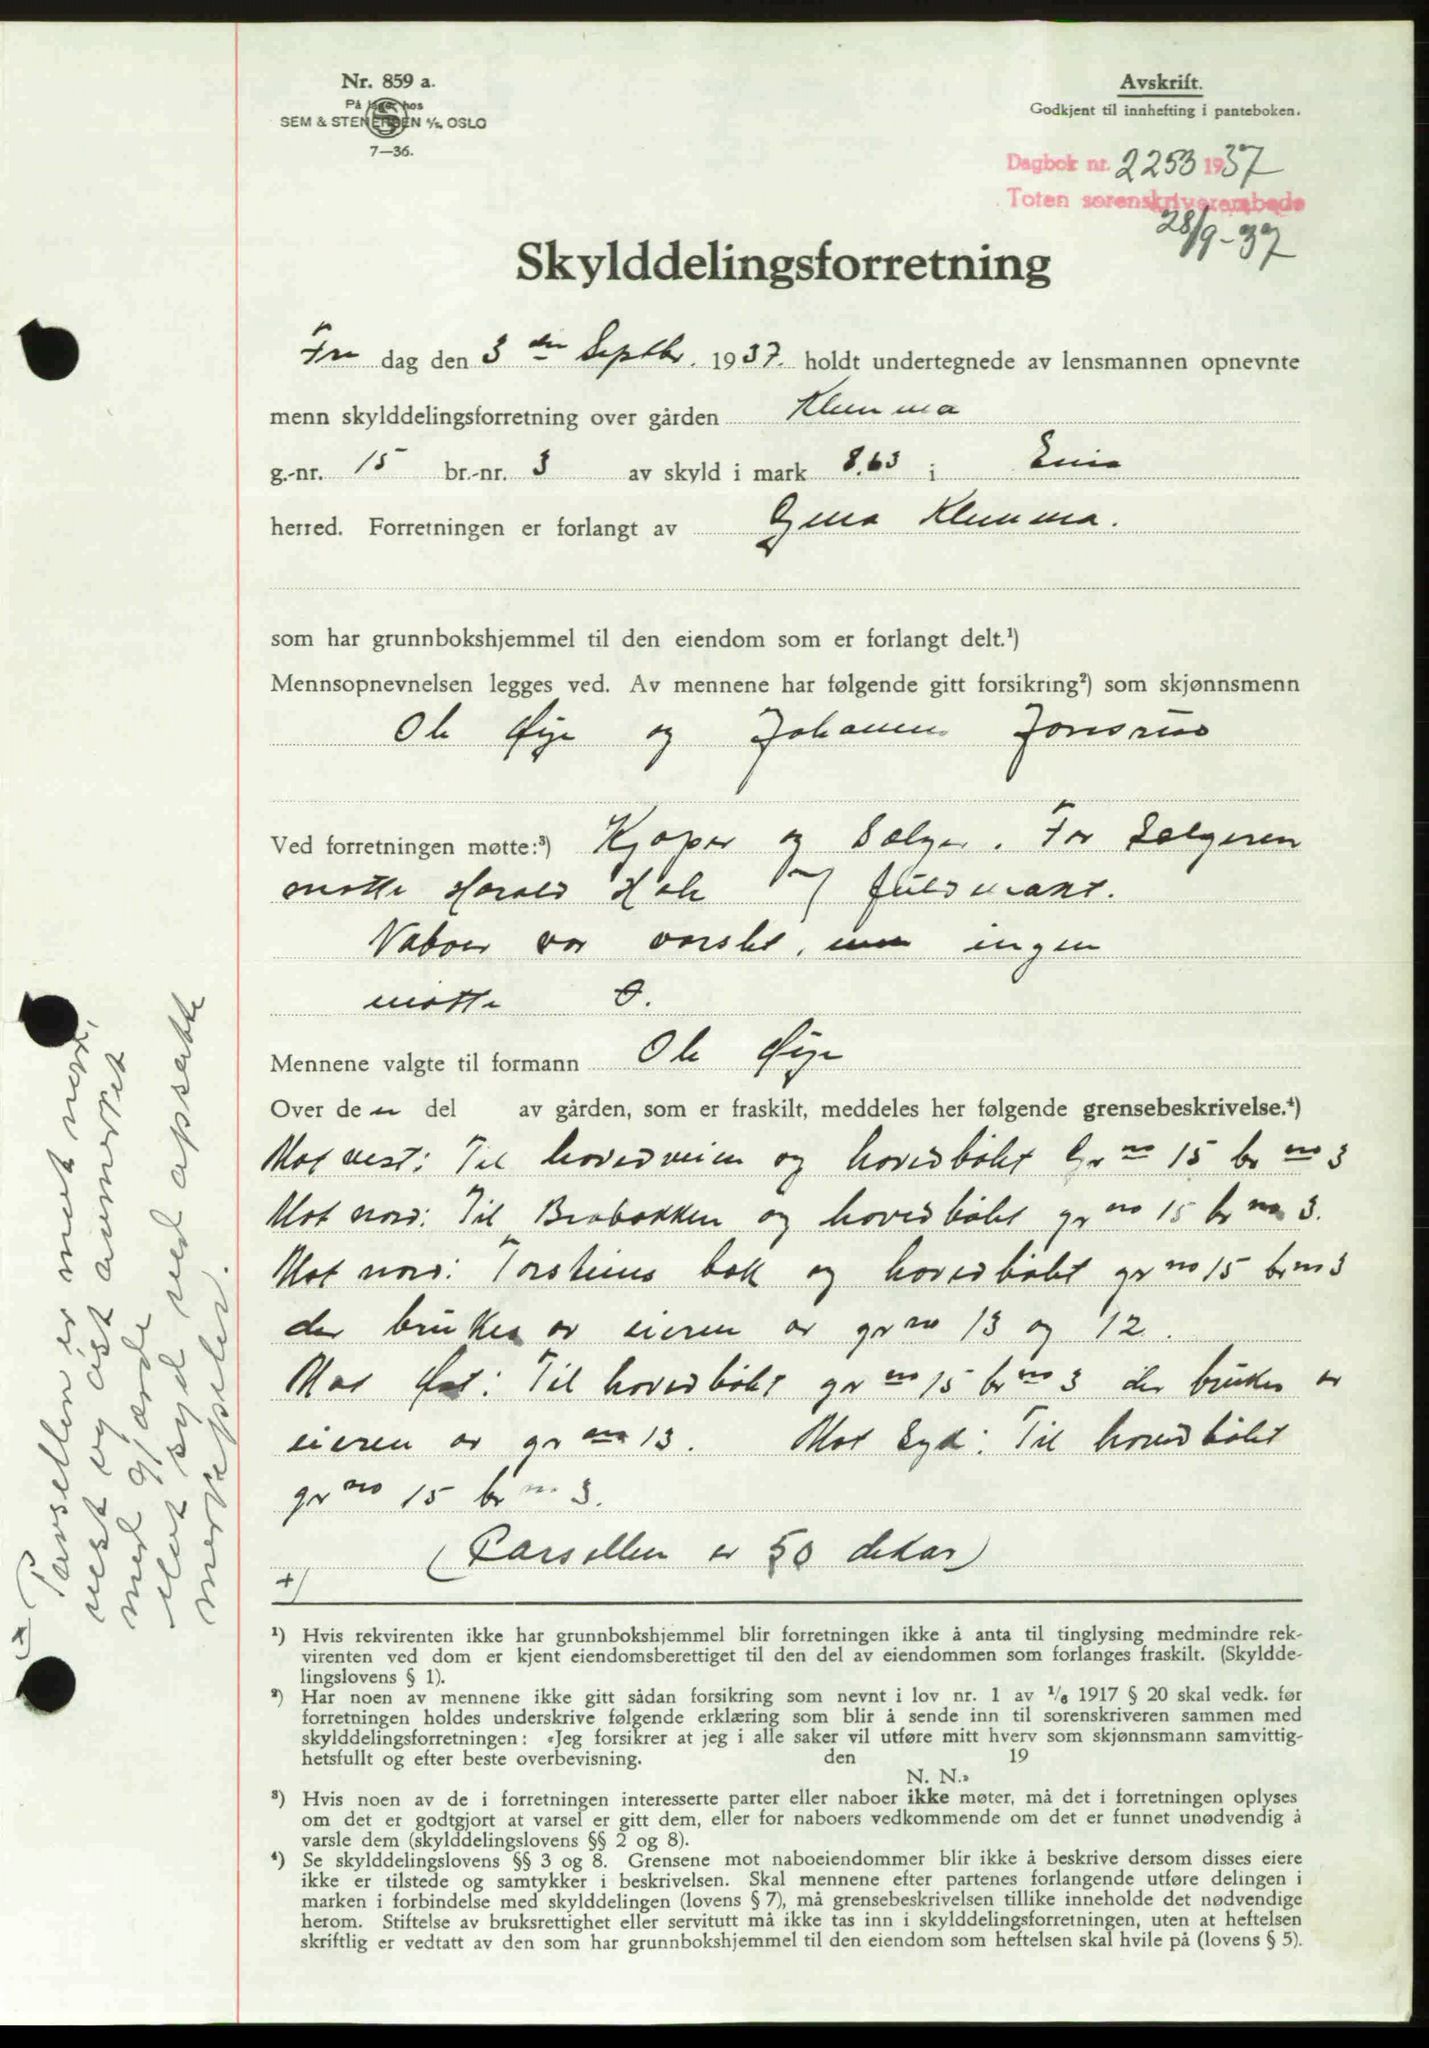 Nr. 859 a.
På lager hos
SEM & STENERSEN A/S. OSLO
7—36.
Avskrift.
Godkjent til innhefting i panteboken.
Dagbok nr. 2253 1937
Toten sorenskriverembede
28/9-37
Skylddelingsforretning
Fre dag den 3 den Septbr. 1937. holdt undertegnede av lensmannen opnevnte
menn skylddelingsforretning over gården Klumma
g.-nr. 15 br.-nr. 3 av skyld i mark 8.63 i
herred. Forretningen er forlangt av Klumma.
som har grunnbokshjemmel til den eiendom som er forlangt delt.¹)
Mennsopnevnelsen legges ved. Av mennene har følgende gitt forsikring²) som skjønnsmenn
Ole Øije og Johannes Jonsrud
Ved forretningen møtte:³) Kjøper og Selger. For Selgeren
møtte Harald fuldmakt.
Naboer var varslet, men ingen
møtte
Mennene valgte til formann Ole Øije
Over de n del av gården, som er fraskilt, meddeles her følgende grensebeskrivelse.⁴)
Mot vest: Til hovedveien og hovedbølet gr no 15 br no 3
Mot nord: Til og hovedbølet gr no 15 br no 3.
Mot nord: Torsteins bekk og hovedbølet gr no 15 br no 3
der brukes av eieren av gr no 13 og 12.
Mot Øst: Til hovedbølet gr no 15 br no 3 der brukes av
eieren av gr no 13. Mot Syd: Til hovedbølet
gr no 15 br no 3.
(Parsellen er 50 dekar)
+)
+) Parsellen er mot nord,
vest og øst avmerket
med gjerde
Mot syd ved opsatte
merkepeler.
¹) Hvis rekvirenten ikke har grunnbokshjemmel blir forretningen ikke å anta til tinglysing medmindre rek-
virenten ved dom er kjent eiendomsberettiget til den del av eiendommen som forlanges fraskilt. (Skyldde-
lingslovens § 1).
²) Har noen av mennene ikke gitt sådan forsikring som nevnt i lov nr. 1 av ¹/₆ 1917 § 20 skal vedk. før
forretningen holdes underskrive følgende erklæring som blir å sende inn til sorenskriveren sammen med
skylddelingsforretningen: «Jeg forsikrer at jeg i alle saker vil utføre mitt hverv som skjønnsmann samvittig-
hetsfullt og efter beste overbevisning. den 19
N. N.»
³) Hvis noen av de i forretningen interesserte parter eller naboer ikke møter, må det i forretningen oplyses
om det er godtgjort at varsel er gitt dem, eller for naboers vedkommende om det er funnet unødvendig å
varsle dem (skylddelingslovens §§ 2 og 8).
⁴) Se skylddelingslovens §§ 3 og 8. Grensene mot naboeiendommer blir ikke å beskrive dersom disses eiere
ikke er tilstede og samtykker i beskrivelsen. Skal mennene efter partenes forlangende utføre delingen i
marken i forbindelse med skylddelingen (lovens § 7), må grensebeskrivelsen tillike inneholde det nødvendige
herom. Stiftelse av bruksrettighet eller servitutt må ikke tas inn i skylddelingsforretningen, uten at heftelsen
skriftlig er vedtatt av den som har grunnbokshjemmel til den eiendom som heftelsen skal hvile på (lovens § 5).